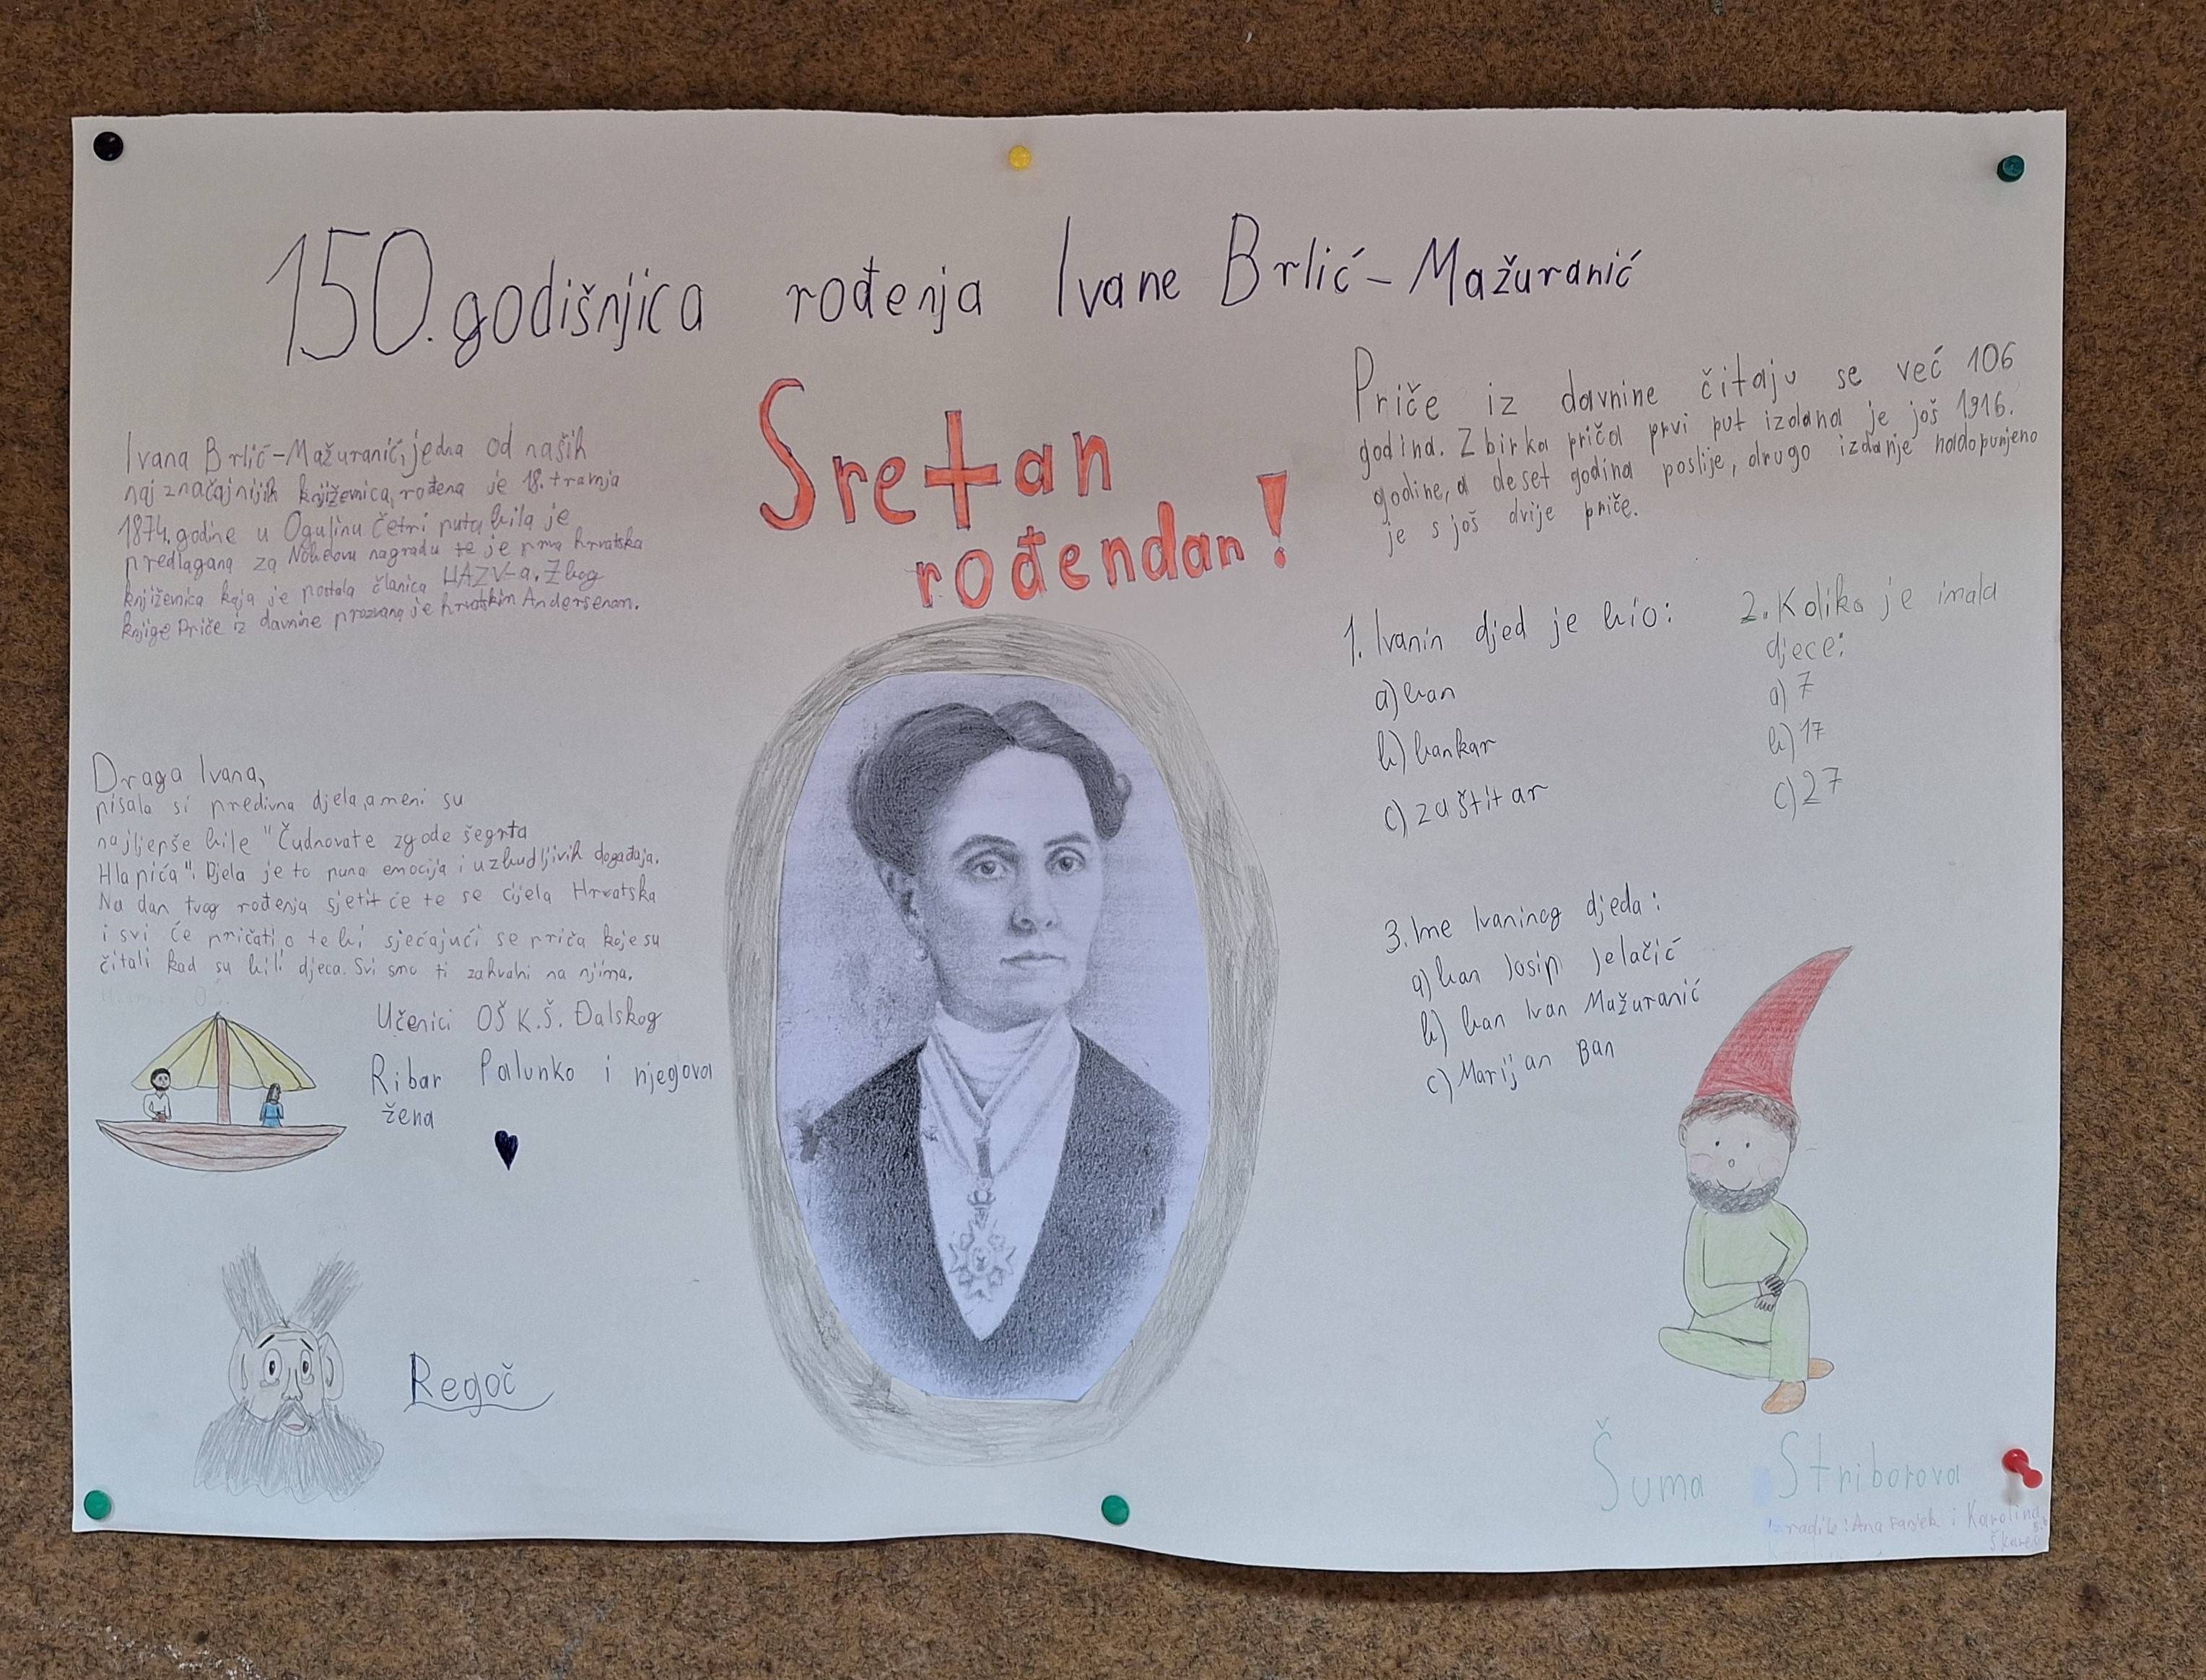 150. godišnjica rođenja Ivane Brlić-Mažuranić
Sretan
rođendan!
Ivana Brlić-Mažuranić, jedna od naših
najznačajnijih književnica, rođena je 18. travnja
1874. godine u Ogulinu četri puta bila je
predlagana za Nobelovu nagradu te je prva hrvatska
književnica koja je postala članica HAZV-a. Zbog
knjige Priče iz davnine prozvana je hrvatskim Andersenom.
Draga Ivana,
pisala si predivna djela, a meni su
najljepše bile "Čudnovate zgode šegrta
Hlapića". Djela je to puna emocija i uzbudljivih događaja.
Na dan tvog rođenja sjetit će te se cijela Hrvatska
i svi će pričati o tebi sjećajući se priča koje su
čitali kad su bili djeca. Svi smo ti zahvalni na njima.
Učenici OŠ K.Š. Đalskog
Ribar Palunko i njegova
žena
Regoč
Priče iz davnine čitaju se već 106
godina. Zbirka priča prvi put izdana je još 1916.
godine, a deset godina poslije, drugo izdanje nadopunjeno
je s još dvije priče.
1. Ivanin djed je bio:
a) ban
b) bankar
c) zaštitar
2. Koliko je imala
djece:
a) 7
b) 17
c) 27
3. Ime Ivaninog djeda:
a) ban Josip Jelačić
b) ban Ivan Mažuranić
c) Marijan Ban
Šuma Striborova
Ana i Karolina